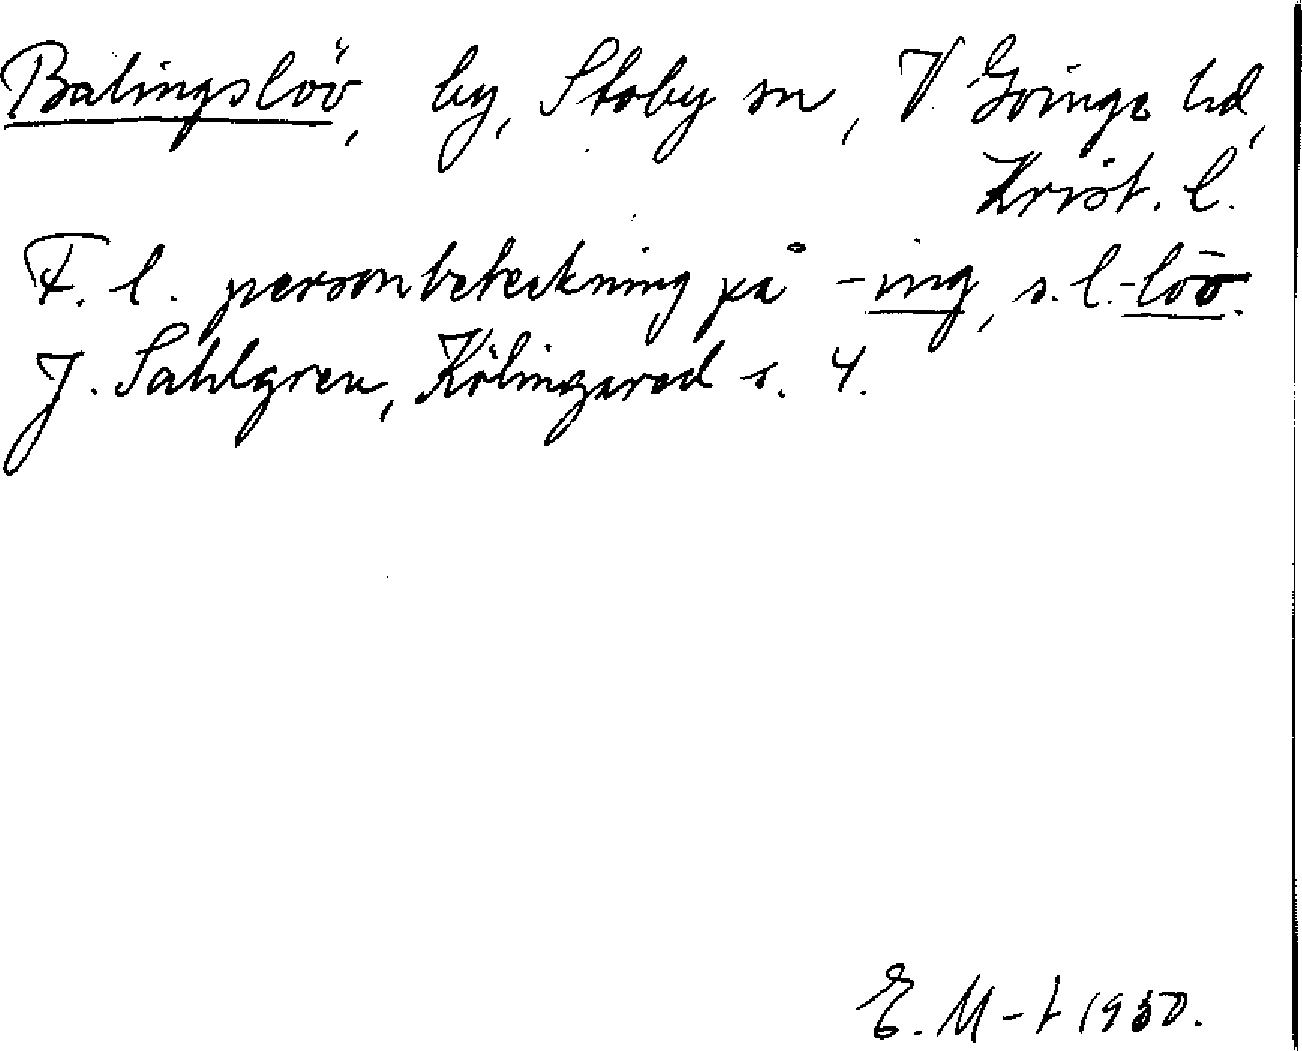 Balingslöv, by, Stoby sn, V. Göinge hd,
Krist. l.
F. l. personbeteckning på -ing, s. l. -löv.
J. Sahlgren, Kölingared s. 4.
E. M-t 1930.